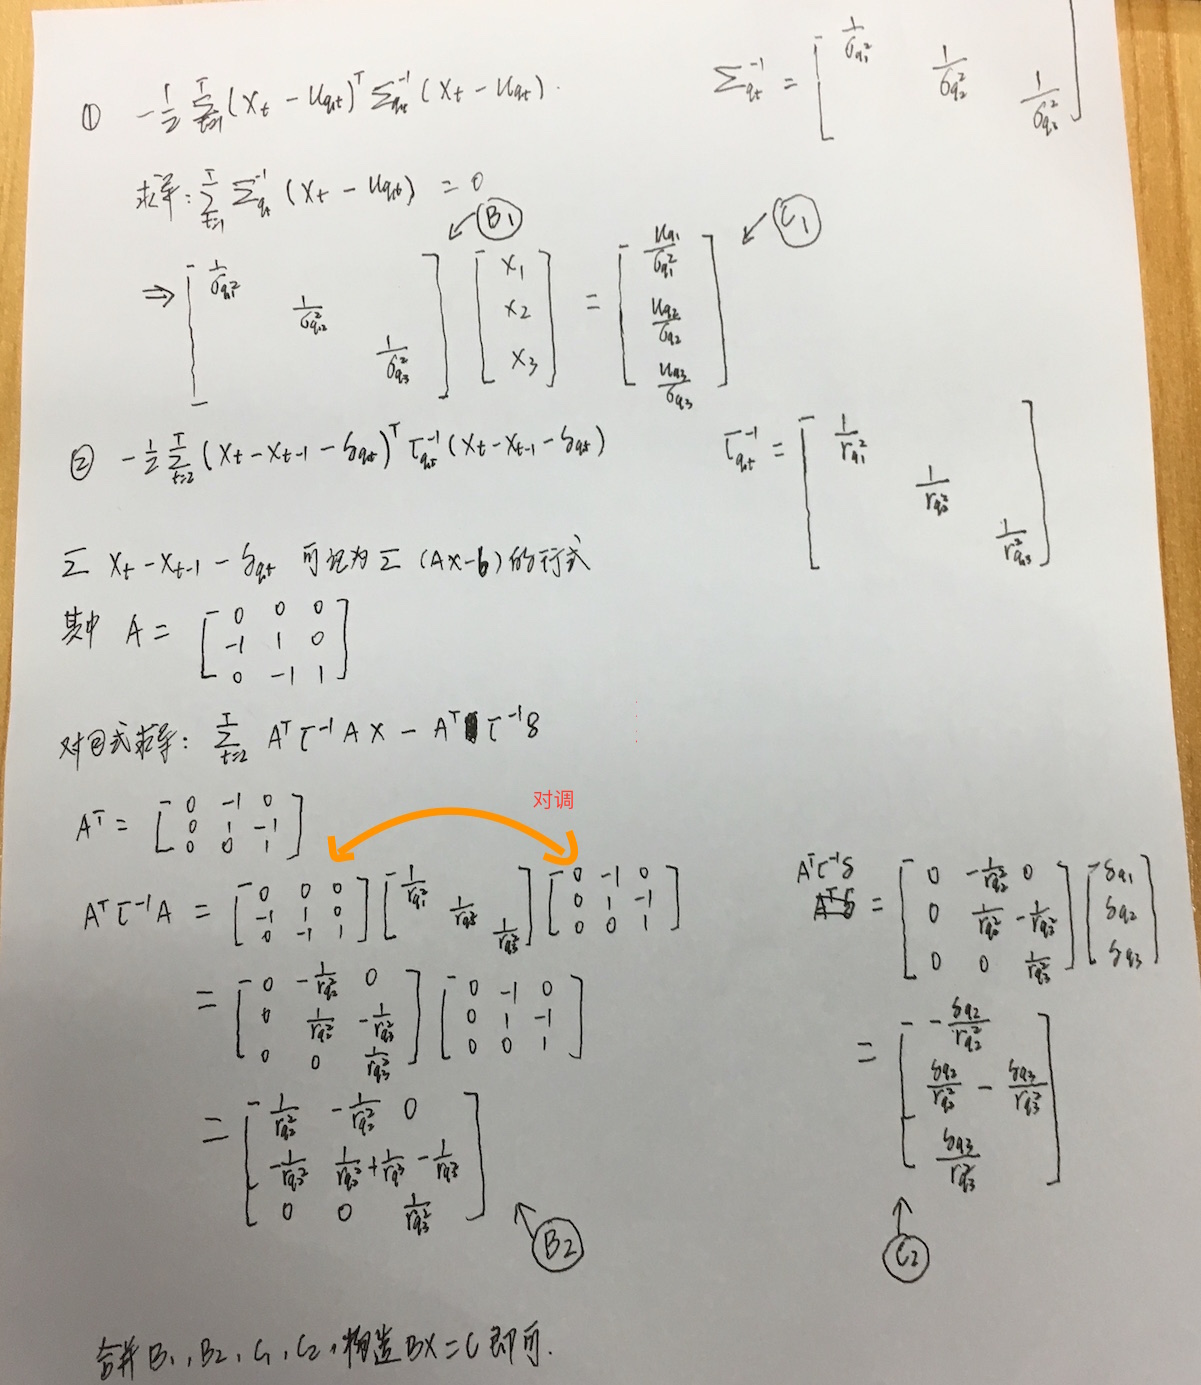 ① -1/2 Σ_{t=1}^{T} (X_t - u_{qt})^T Σ_{qt}^{-1} (X_t - u_{qt}).
Σ_{qt}^{-1} = [ 1/σ_{q1}^2  1/σ_{q2}^2  1/σ_{q3}^2 ]
求导: Σ_{t=1}^{T} Σ_{qt}^{-1} (X_t - u_{qt}) = 0
B1
C1
⇒ [ 1/σ_{q1}^2  1/σ_{q2}^2  1/σ_{q3}^2 ] [ X1 X2 X3 ] = [ u_{q1}/σ_{q1}^2  u_{q2}/σ_{q2}  u_{q3}/σ_{q3} ]
② -1/2 Σ_{t=2}^{T} (X_t - X_{t-1} - δ_{qt})^T τ_{qt}^{-1} (X_t - X_{t-1} - δ_{qt})
τ_{qt}^{-1} = [ 1/r_{q1}^2  1/r_{q2}^2  1/r_{q3}^2 ]
Σ X_t - X_{t-1} - δ_{qt} 可记为 Σ (AX-b) 的行式
其中 A = [ 0 0 0
-1 1 0
0 -1 1 ]
对②式求导: Σ_{t=2}^{T} A^T τ^{-1} A X - A^T τ^{-1} δ
对调
A^T = [ 0 -1 0
0 1 -1
0 0 1 ]
A^T τ^{-1} A = [ 0 0 0 ; -1 1 0 ; 0 -1 1 ] [ 1/r_{q1}^2  1/r_{q2}^2  1/r_{q3}^2 ] [ 0 -1 0 ; 0 1 -1 ; 0 0 1 ]
= [ 0 -1/r_{q2}^2 0 ; 0 1/r_{q2}^2 -1/r_{q3}^2 ; 0 0 1/r_{q3}^2 ] [ 0 -1 0 ; 0 1 -1 ; 0 0 1 ]
= [ 1/r_{q2}^2 -1/r_{q2}^2 0 ; -1/r_{q2}^2 1/r_{q2}^2+1/r_{q3}^2 -1/r_{q3}^2 ; 0 0 1/r_{q3}^2 ]
B2
A^T τ^{-1} δ
A^T δ = [ 0 -1/r_{q2}^2 0 ; 0 1/r_{q2}^2 -1/r_{q3}^2 ; 0 0 1/r_{q3}^2 ] [ δ_{q1} δ_{q2} δ_{q3} ]
= [ -δ_{q2}/r_{q2}^2 ; δ_{q2}/r_{q2}^2 - δ_{q3}/r_{q3}^2 ; δ_{q3}/r_{q3}^2 ]
C2
合并 B1, B2, C1, C2, 构造 BX=C 即可.